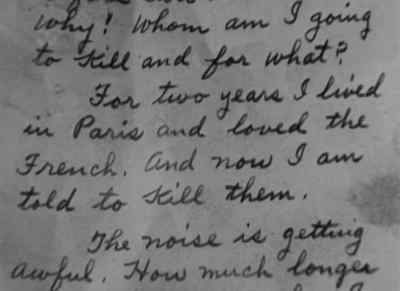 Why! Whom am I going
to kill and for what?
For two years I lived
in Paris and loved the
French. And now I am
told to kill them.
The noise is getting
awful. How much longer